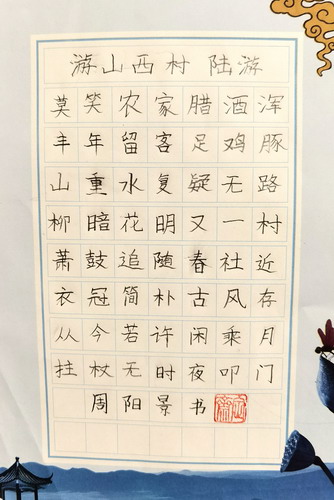 游山西村 陆游
莫笑农家腊酒浑
丰年留客足鸡豚
山重水复疑无路
柳暗花明又一村
萧鼓追随春社近
衣冠简朴古风存
从今若许闲乘月
拄杖无时夜叩门
周阳景书